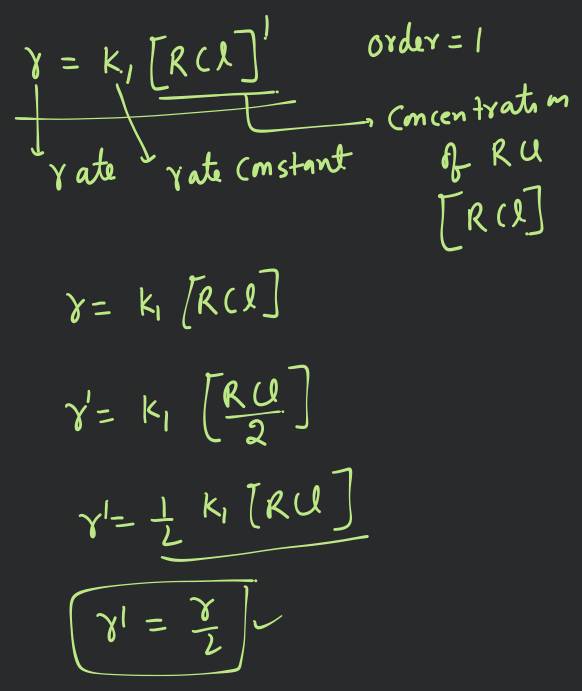 r = k₁ [RCl]¹ order = 1
rate rate constant Concentration of RCl [RCl]
r = k₁ [RCl]
r' = k₁ [RCl/2]
r' = 1/2 k₁ [RCl]
r' = r/2 ✓